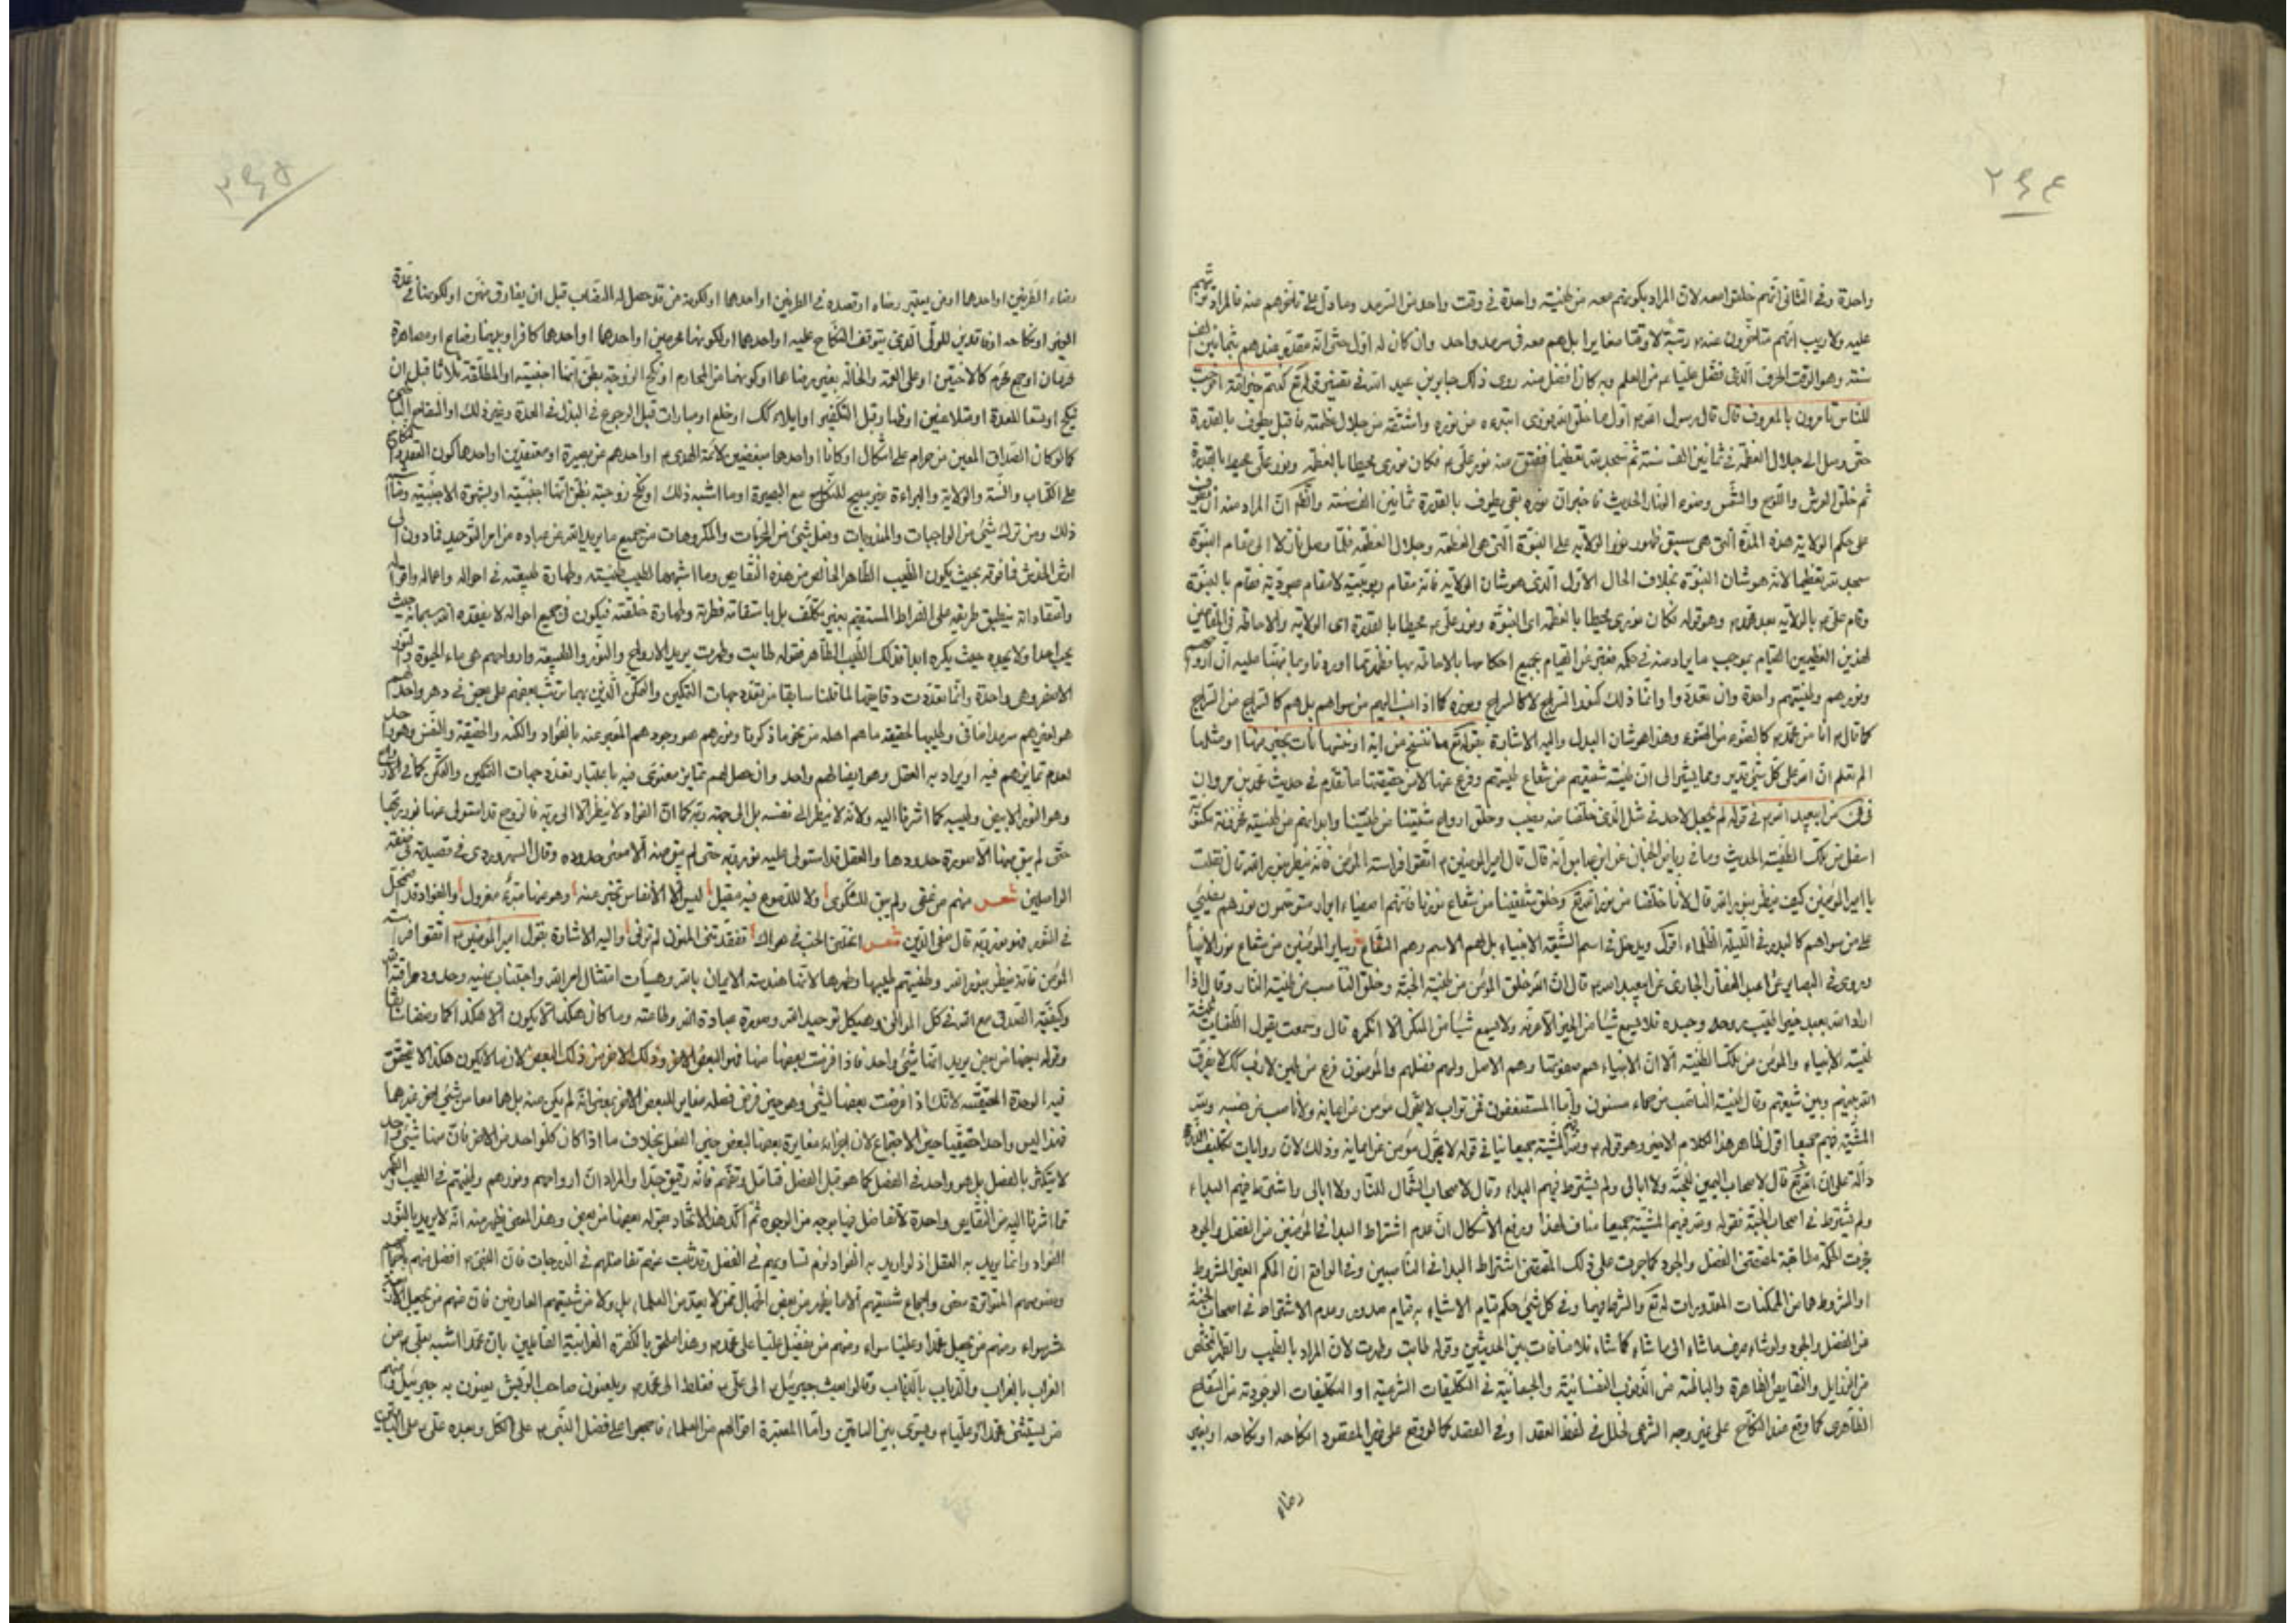 ٢٦٤
واحدة وفى الثانى انهم خلقوا معه لان المراد بكونهم معه من طينة واحدة فى وقت واحد من السرمد وما دل على تأخرهم عنه فالمراد
عليه ولا ريب انهم متأخرون عنه رتبة لا وقتا مغايرا بل هم معه فى سرمد واحد وان كان له اول حتى انه مقدم عندهم بثمانين الف
سنة وهو الوقت الحرف الذى فضل عليا من العلم وبه كان افضل منه روى ذلك جابر بن عبد الله فى تفسير قوله تع كنتم خير امة اخرجت
للناس تأمرون بالمعروف قال قال رسول الله ص اول ما خلق الله نورى ابتدعه من نوره واشتقه من جلال عظمته فاقبل يطوف بالقدرة
حتى وصل الى جلال العظمة فى ثمانين الف سنة ثم سجد لله تعظيما ففتق منه نور على ع فكان نورى محيطا بالعظمة ونور على محيطا بالقدرة
ثم خلق العرش واللوح والشمس وضوء النهار الحديث فاخبر ان نوره بقى يطوف بالقدرة ثمانين الف سنة والظ ان المراد منه ان
على حكم الولاية هذه المدة التى هى سبق ظهور نور الولاية على النبوة التى هى العظمة وجلال العظمة فلما وصل نازلا الى مقام النبوة
سجد لله تعظيما لانه هو شان النبوة بخلاف الحال الاول الذى هو شان الولاية فانه مقام ربوبية لا مقام عبودية فقام بالنبوة
وقام على ع بالولاية بعد محمد ص وهو قوله فكان نورى محيطا بالعظمة اى النبوة ونور على ع محيطا بالقدرة اى الولاية والاحاطة فى المقامين
لهذين العظيمين القيام بموجب ما يراد منه فى حكمه فغنى عن القيام بجميع احكامها بالاحاطة بها فظهر مما اوردنا وبما نبهنا عليه ان ارواحهم
ونورهم وطينتهم واحدة وان تعددوا وانما ذلك كنور السراج لا كالسراج ونوره كما اذا نسب اليهم من سواهم بل هم كالسراج من السراج
كما قال ع انا من محمد ص كالضوء من الضوء وهذا هو شان البدل واليه الاشارة بقوله تع ما ننسخ من اية او ننسها نأت بخير منها او مثلها
الم تعلم ان الله على كل شئ قدير ومما يشير الى ان طينة شيعتهم من شعاع طينتهم وفرع عنها لا من حقيقتها ما تقدم فى حديث محمد بن مروان
عن ابيعبد الله ع فى قوله لم يجعل لاحد فى مثل الذى خلقنا منه نصيب وخلق ارواح شيعتنا من طينتنا وابدانهم من طينة مخزونة مكنونة
اسفل من تلك الطينة الحديث وما فى رياض الجنان عن ابن عباس انه قال قال امير المؤمنين ع اتقوا فراسة المؤمن فانه ينظر بنور الله قال فقلت
يا امير المؤمنين كيف ينظر بنور الله قال لانا خلقنا من نور الله تع وخلق شيعتنا من شعاع نورنا فانهم اصفياء ابرار متوسمون نورهم يضئ
على من سواهم كالبدر فى الليلة الظلماء اقول ويدخل فى اسم الشيعة الانبياء بل لهم الاسم وهم الشعاع وساير المؤمنين من شعاع نور الانبيا
وروى فى البصاير عن عبد الغفار الجازى عن ابيعبد الله ع قال ان الله خلق المؤمن من طينة الجنة وخلق الناصب من طينة النار وقال اذا
اراد الله بعبد خيرا طيب روحه وجسده فلا يسمع شيئا من الخير الا عرفه ولا يسمع شيئا من المنكر الا انكره قال وسمعت يقول الطينات ثلثة
طينة الانبياء والمؤمن من تلك الطينة الا ان الانبياء هم صفوتها وهم الاصل ولهم فضلهم والمؤمنون فرع من طين لازب كك لا يفرق
الله بينهم وبين شيعتهم وقال طينة الناصب من حماء مسنون واما المستضعفون فمن تراب لا يتحول مؤمن عن ايمانه ولا ناصب عن نصبه ولله
المشية فيهم جميعا اقول ظاهر هذا الكلام الاخير وهو قوله ع ولله المشية فيهم جميعا ينافى قوله لا يتحول مؤمن عن ايمانه وذلك لان روايات تكليف الذر
دالة على ان الله تع قال لاصحاب اليمين للجنة ولا ابالى ولم يشترط فيهم البداء وقال لاصحاب الشمال للنار ولا ابالى واشترط فيهم البداء
ولم يشترط فى اصحاب الجنة فقوله ولله فيهم المشية جميعا مناف لهذا ورفع الاشكال ان عدم اشتراط البدا فى المؤمنين من الفضل والجود
فجرت الحكمة مطابقة لمقتضى الفضل والجود كما جرت على ذلك المقتضى اشتراط البدا فى الناصبين وفى الواقع ان الحكم الغير المشروط
او المشروط هما من الممكنات المقدورات له تع والشرط فيهما وفى كل شئ حكم قيام الاشياء به قيام صدور وعدم الاشتراط فى اصحاب الجنة
من الفضل والجود ولو شاء صرف ما شاء الى ما شاء كما شاء فلا منافات بين الحديثين وقوله طابت وطهرت لان المراد بالطيب والطهر التخلص
من الرذايل والنقايص الظاهرة والباطنة من الذنوب النفسانية والجسمانية فى التكليفات الشرعية او التكليفات الوجودية من النكاح
الظاهرى كما وقع عند النكاح على غير وجه الشرعى لخلل فى لفظ العقد او فى العقد كما لو وقع على غير المقصود انكاحه او نكاحه او بغير
رضاء
٢٦٥
رضاء الطرفين او احدهما او من يعتبر رضاه او قصده فى الطرفين او احدهما او لكونه من قد حصل له النصاب قبل ان يفارق منهن او لكونها فى عدة
الغير او نكاحه اذا فاقدين للولى الذى يتوقف النكاح عليه او احدهما او لكونهما محرمين او احدهما او احدهما كافرا وبينهما رضاع او مصاهرة
يحرمان او جمع محرم كالاختين او على العمة والخالة بغير رضاهما او كونهما من المحارم او نكح الزوجة بظن انها اجنبية او المطلقة ثلاثا قبل ان
تنكح او تسعا للعدة او متلاعنين او ظهار قبل التكفير او ايلاء كك او خلع او مبارات قبل الرجوع فى البذل فى العدة وغير ذلك او النكاح
كما لو كان الصداق المعين من حرام على اشكال او كانا او احدهما مبغضين لائمة الهدى ع او احدهم من بصيرة او معتقدين او احدهما كون العقد
على الكتاب والسنة والولاية والبراءة غير مبيح للنكاح مع البصيرة او ما اشبه ذلك او نكح زوجته بظن انها اجنبية او بشهوة الاجنبية وما
ذلك ومن ترك شئ من الواجبات والمندوبات وفعل شئ من المحرمات والمكروهات من جميع ما يريد الله من عباده من امر التوحيد فما دون الى
ارش الخدش فما فوقه بحيث يكون الطيب الطاهر الخالص من هذه النقايص وما اشبهها لطيب طينته وطهارة طبيعته فى احواله واعماله واقواله
واعتقاداته ينطبق طريقه على الصراط المستقيم بغير تكلف بل باستقامة فطرته وطهارة خلقته فيكون فى جميع احواله لا يفقده الله سبحانه حيث
يحب ابدا ولا يجده حيث يكره ابدا فذلك الطيب الطاهر فقوله طابت وطهرت يريد الارواح والنور والطبيعة وارواحهم هى ماء الحيوة والنور
الاصفر وهى واحدة وانما تعددت دقايقها لما قلنا سابقا من تعدد جهات التمكين والتمكن الذين بهما ترتب بعضهم على بعض فى دهر واحد
هو لغيرهم سرمد اضافى وطيبها لحقيقة ما هم اهله من نحو ما ذكرنا ونورهم هو وجودهم المعبر عنه بالفؤاد والكنه والحقيقة والنفس وهو واحد
لعدم تمايزهم فيه او يراد به العقل وهو ايضا لهم واحد وان حصل لهم تمايز معنوى فيه باعتبار تعدد جهات التمكين والتمكن كما فى الارواح
وهو النور الابيض وطيبه كما اشرنا اليه ولانه لا ينظر الى نفسه بل الى جهة ربه كما ان الفؤاد لا ينظر الا الى ربه فالروح قد استولى عنها نور ربها
حتى لم يبق منها الا صورة حدودها والعقل قد استولى عليه نور ربه حتى لم يبق منه الا معنى حدوده وقال السهروردى فى قصيدته فى صفة
الواصلين شعر منهم من عفى ولم يبق للشكوى ولا للدموع فيه مقيل ليس الا الانفاس تخبر عنه وهو منها مبرء معزول والفؤاد قد اضمحل
فى النور فنور ربه قال صفى الدين شعر افنانى الحب فى هواك تفقدتنى المنون لم ترنى واليه الاشارة بقول امير المؤمنين ع اتقوا فراسة
المؤمن فانه ينظر بنور الله وطينتهم طيبها وطهرها لانها هندسة الايمان بالله وهيئات امتثال امر الله واجتناب نهيه وحدود معرفة الله
وكيفية الصدق مع الله فى كل المواطن وهيكل توحيد الله وصورة عبادة الله وطاعته وما كان هكذا لا يكون الا هكذا كما وصفنا سابقا
وقوله بعضها من بعض يريد انها شئ واحد فاذا فرضت بعضها منها فهو البعض الاخر وذلك الاخر من ذلك البعض لان ما لا يكون هكذا لا تتحقق
فيه الوحدة الحقيقية لانك اذا فرضت بعضا لشئ وهو حين فرض فصله مغاير للبعض الاخر بمعنى انه لم يكن منه بل هما معا من شئ اخر غيرهما
فهذا ليس واحدا حقيقيا حين الاجتماع لان اجزاءه مغايرة بعضها لبعض حين الفصل بخلاف ما اذا كان كل واحد من الاخر فان منها شئ واحد
لا يتكثر بالفصل بل هو واحد فى الفصل كما هو قبل الفصل فتأمل وتفهم فانه رقيق جدا والمراد ان ارواحهم ونورهم وطينتهم فى الطيب والطهر
مما اشرنا اليه من النقايص واحدة لا تفاضل فيها بوجه من الوجوه ثم اكد هذا الاتحاد بقوله بعضها من بعض وهذا المعنى يظهر منه انه لا يريد بالنور
الفؤاد وانما يريد به العقل اذ لو اريد به الفؤاد لزم تساويهم فى الفضل وقد ثبت عنهم تفاضلهم فى الدرجات فان النبى ص افضل منهم باجماع
ونصوصهم المتواترة معنى واجماع شيعتهم الا ما يظهر من بعض الجهال ممن لا يعد من العلماء بل ولا من شيعتهم العارفين فان منهم من يجعل الاربعة
عشر سواء ومنهم من يجعل محمدا وعليا سواء ومنهم من يفضل عليا على محمد ص وهذا ملحق بالكفرة الغرابية القائلين بان محمدا اشبه بعلى ع من
الغراب بالغراب والذباب بالذباب وقالوا بعث جبرئيل ع الى على ع فغلط الى محمد ص ويلعنون صاحب الريش يعنون به جبرئيل ومنهم
من يستثنى محمدا وعليا ويسوى بين الباقين واما المعتبرة اقوالهم من العلماء فاجمعوا على فضل النبى ص على الكل وبعده على ع على الباقين